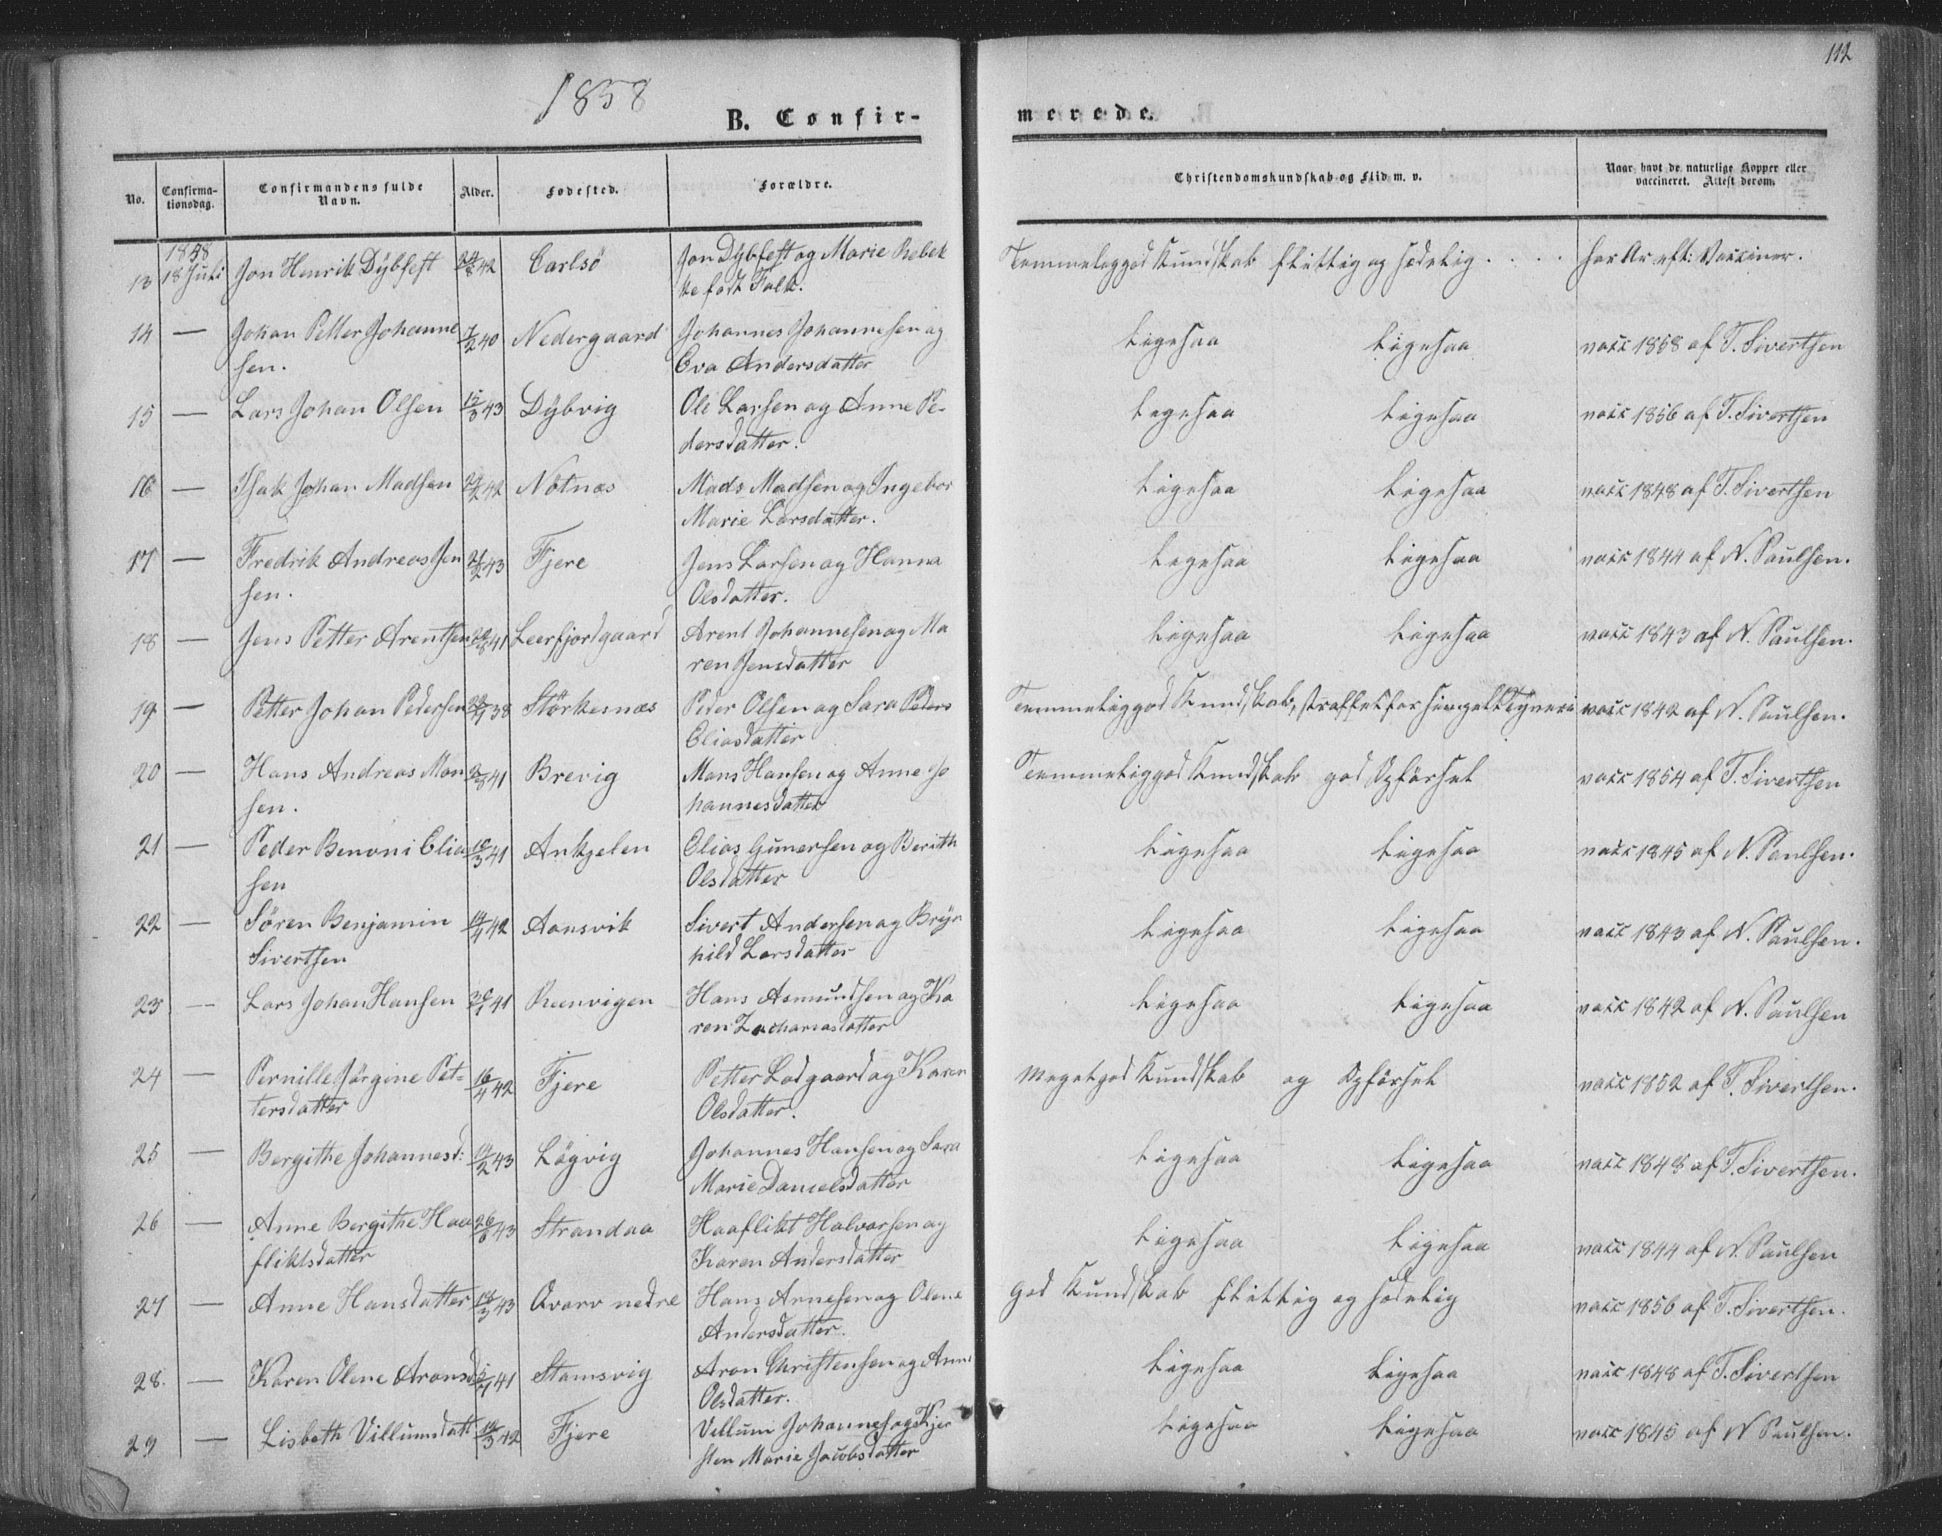 112
1858
B. Confir-
merede.
No.
Confirma-
tionsdag.
Confirmandens fulde
Navn.
Alder.
Fødested.
Forældre.
Christendomskundskab og Flid m. v.
Naar havt de naturlige Kopper eller
vaccineret. Attest derom.
1858
13 18 Juli Jon Henrik Dÿbfest 42 Carlsö Jon Dÿbfest og Marie Rebek Temmeliggod Kundskab flittig og sædelig . . . . har Ar eft: Vacciner.
ke født Falk.
14 — Johan Petter Johanne 7/2 40 Nedergaard Johannes Johannesen og ligesaa ligesaa vacc 1858 af T. Sivertsen
sen. Eva Andersdatter
15 — Lars Johan Olsen 15/3 43 Dÿbvig Ole Larsen og Anne Pe- ligesaa ligesaa vacc 1856 af T. Sivertsen
dersdatter.
16 — Isak Johan Madsen 42 Nötnæs Mads Madsen og Ingebor ligesaa ligesaa vacc 1848 af T. Sivertsen
Marie Larsdatter.
17 — Fredrik Andreas Jen 43 Fjere Jens Larsen og Hanna ligesaa ligesaa vacc 1844 af N. Paulsen.
sen. Olsdatter.
18 — Jens Petter Arentsen 41 Leerfjordgaard Arent Johannesen og Ma ligesaa ligesaa vacc 1843 af N. Paulsen.
ren Jensdatter
19 — Petter Johan Pedersen 38 Störkesnæs Peder Olsen og Sara Peders Temmeliggod Kundskab, straffet for vacc 1842 af N. Paulsen.
Eliasdatter
20 — Hans Andreas Mon 41 Brevig Mons Hansen og Anne Jo Temmeliggod Kundskab god Opförsel vacc 1854 af T. Sivertsen
sen. hannesdatter
21 — Peder Benoni Elia 18/3 41 Ankjelen Elias Gunersen og Berith ligesaa ligesaa vacc 1845 af N. Paulsen.
sen Olsdatter
22 — Sören Benjamin 42 Aansvik Sivert Andersen og Brÿn ligesaa ligesaa vacc 1843 af N. Paulsen.
Sivertsen hild Larsdatter
23 — Lars Johan Hansen 41 Reenvigen Hans Asmundsen og Ka ligesaa ligesaa vacc 1842 af N. Paulsen
ren Zachariasdatter
24 — Pernille Jörgine Pet- 16/4 42 Fjere Petter Lodgaard og Karen Meget god Kundskab og Opförsel vacc 1852 af T. Sivertsen.
tersdatter Olsdatter.
25 — Bergithe Johannesd: 43 Lögvig Johannes Hansen og Sara ligesaa ligesaa vacc 1848 af T. Sivertsen.
Marie Danielsdatter
26 — Anne Bergithe Haa 43 Strandaa Haaflikt Halvorsen og ligesaa ligesaa vacc 1844 af N. Paulsen
fliktsdatter Karen Andersdatter
27 — Anne Hansdatter 18/3 43 Qvarv nedre Hans Arnesen og Olene god Kundskab flittig og sædelig vacc 1856 af T. Sivertsen.
Andersdatter.
28. — Karen Olene Aronsd 41 Stamsvig Aron Christensen og Anne ligesaa ligesaa vacc 1848 af T. Sivertsen
Olsdatter.
29 — Lisbeth Villumsdatt 42 Fjere Villum Johannes og Kjer ligesaa ligesaa vacc 1845 af N Paulsen.
sten Marie Jacobsdatter